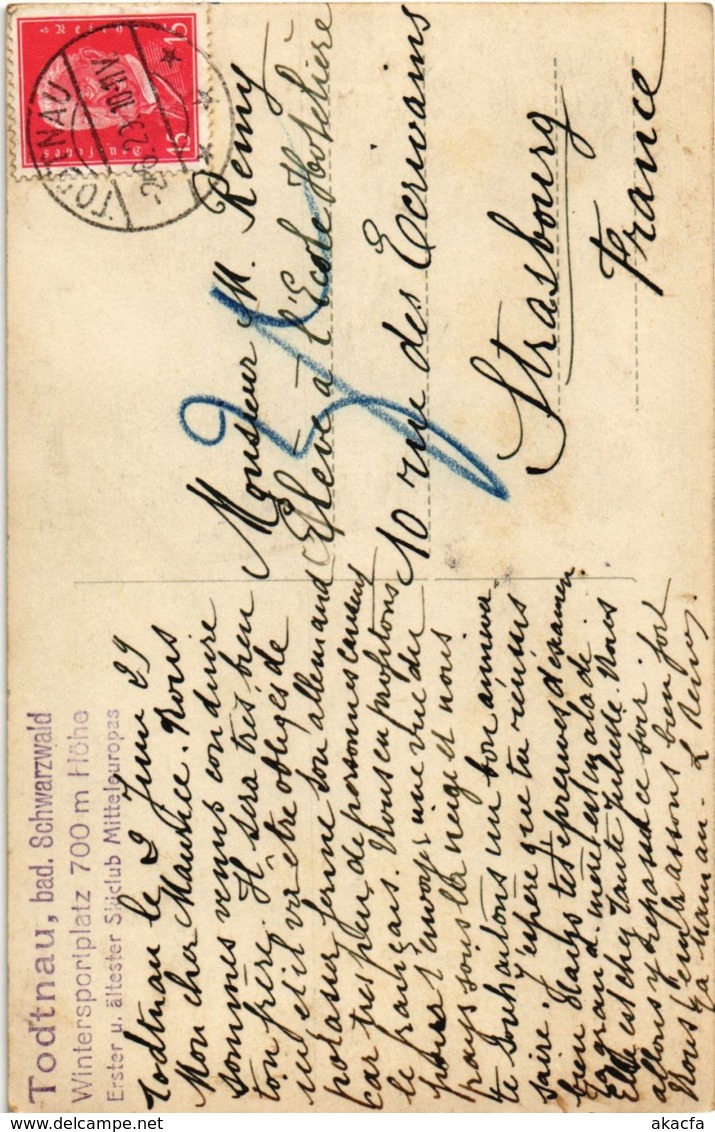 Todtnau, bad. Schwarzwald
Wintersportplatz 700 m Höhe
Erster u. ältester Skiclub Mitteleuropas
Todtnau le 2 Juin 29
Mon cher Maurice. Nous
sommes venus conduire
ton frère. Il sera très bien
ici et il va être obligé de
potasser ferme son allemand
car très peu de personnes causent
le français. Nous en profitons
pour t'envoyer une vue du
pays sous la neige et nous
te souhaitons un bon anniver
saire. J'espère que tu réussis
bien dans tes épreuves d'examen
Ta grand-mère est malade
Elle est chez tante Juliette. Nous
allons y repasser ce soir.
Nous t'embrassons bien fort
Ta maman - L Remy
Monsieur M. Remy
Elève à l'Ecole Hotelière
10 rue des Ecrivains
Strasbourg
France
TODTNAU
15
15
akacfa
www.akacfa.com